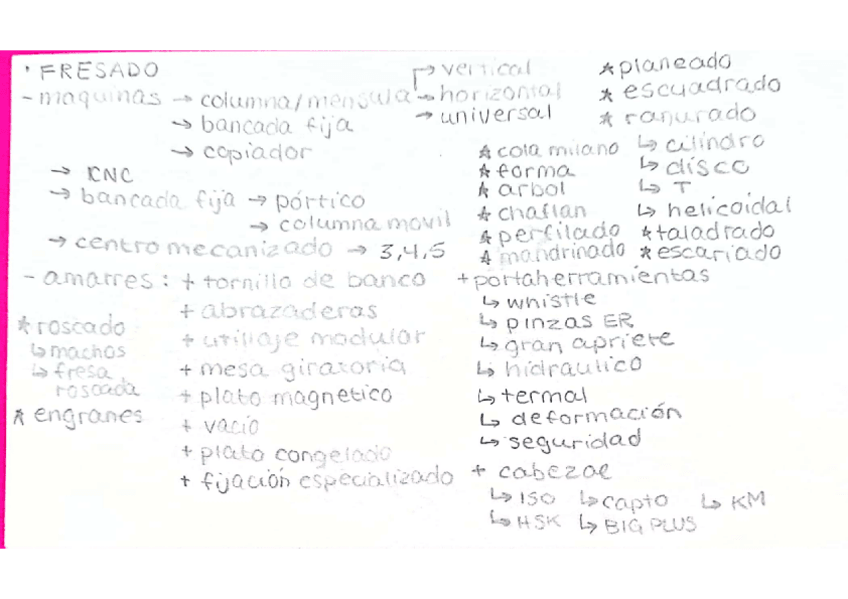 · FRESADO
- maquinas → columna/mensula → vertical
→ horizontal
→ universal
→ bancada fija
→ copiador
→ CNC
→ bancada fija → pórtico
→ columna movil
→ centro mecanizado → 3,4,5
- amarres: + tornillo de banco
+ abrazaderas
+ utillaje modular
+ mesa giratoria
+ plato magnetico
+ vacío
+ plato congelado
+ fijación especializado
* roscado
↳ machos
↳ fresa
roscada
* engranes
* planeado
* escuadrado
* ranurado
↳ cilindro
↳ disco
↳ T
↳ helicoidal
* cola milano
* forma
* arbol
* chaflan
* perfilado
* mandrinado
* taladrado
* escariado
+ portaherramientas
↳ whistle
↳ pinzas ER
↳ gran apriete
↳ hidraulico
↳ termal
↳ deformación
↳ seguridad
+ cabezal
↳ ISO ↳ capto ↳ KM
↳ HSK ↳ BIG PLUS